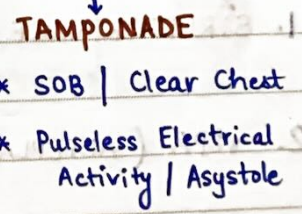 TAMPONADE
* SOB | Clear Chest
* Pulseless Electrical
Activity / Asystole